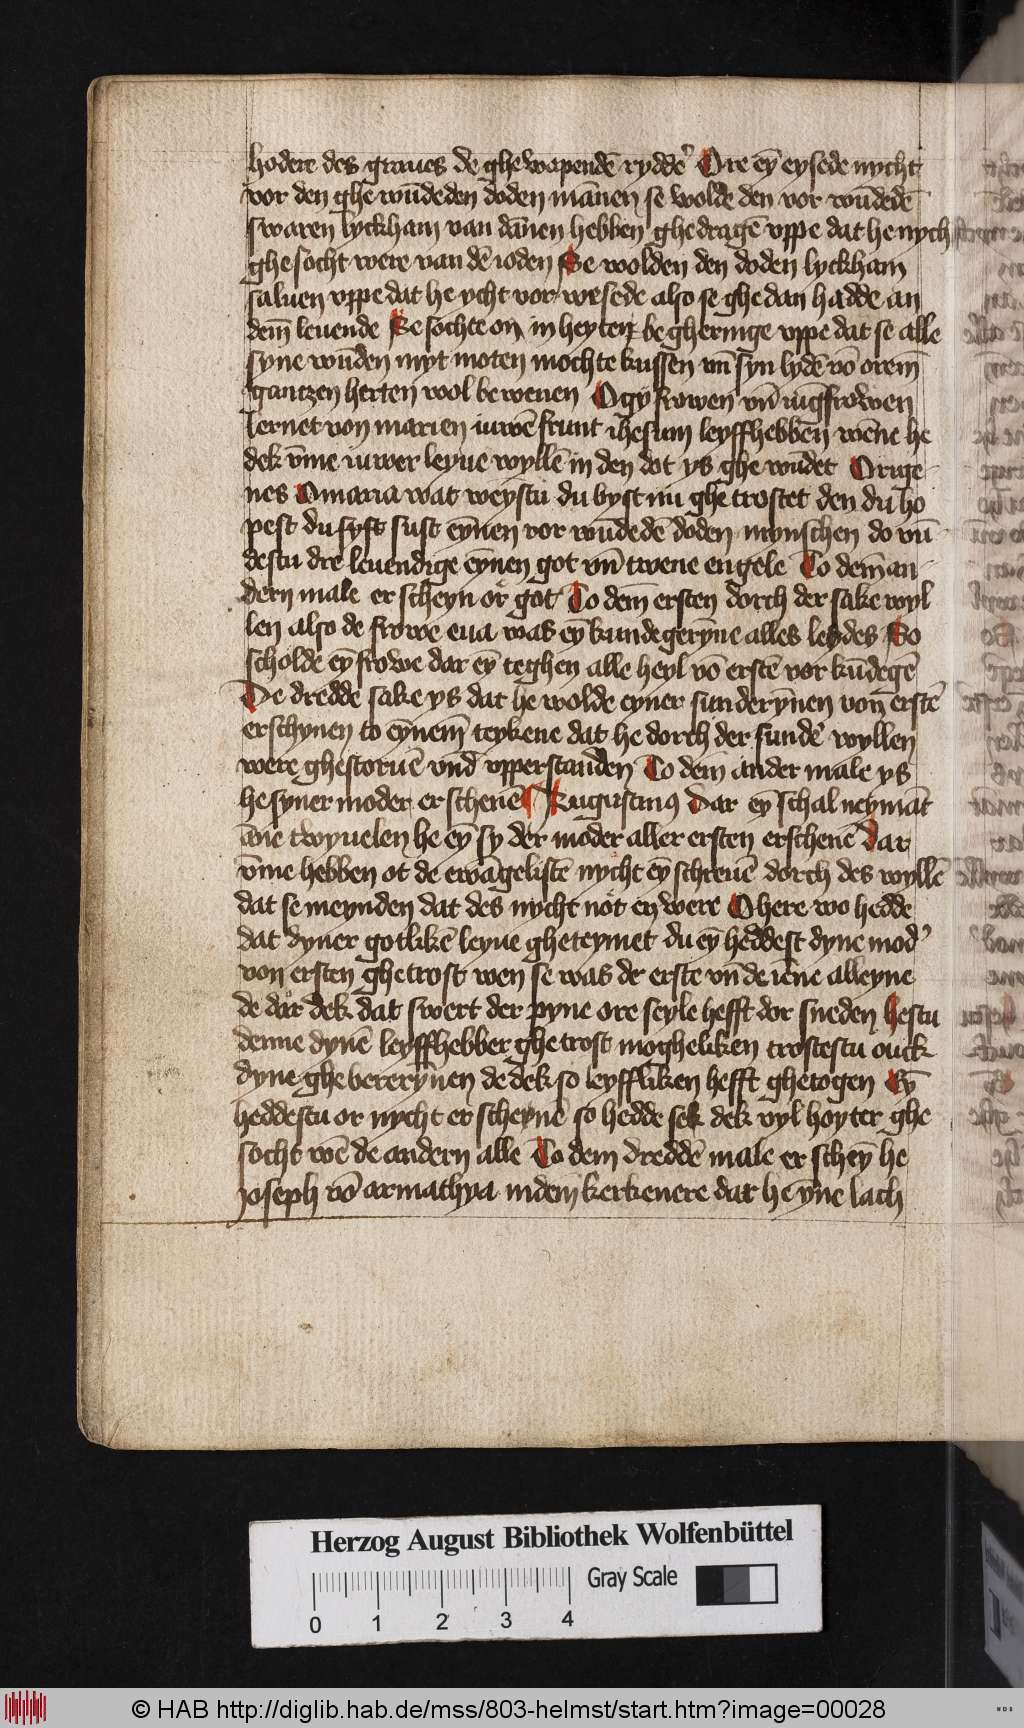 hodere des graues de ghewapendē ryddeˀ Ore eȳ eysede nycht
vor den ghe wūdeden doden mānen se wolde den vor wūdedē
swaren lyckham van dānen hebben ghedragē vppe dat he nycht
ghesocht were van dē ioden Se wolden den doden lyckham
saluen vppe dat he ycht vor wesede also se ghe dan hadde an
dem̄ leuende Se sochte on in heyten begheringe vppe dat se alle
syne wūden myt moten mochte kussen vn̄ syn lydē vō orem̄
gantzen herten wol bewenen O gy frowen vn̄ iūgfrowen
lernet von marien iuwē frunt ihesum leyffhebbēn wēne he
dek v̄me iuwer leyue wyllē in den dot ys ghe wūdet Orige
nes O maria wat weystu du byst nu ghe trostet den du ho
pest du syst sust eȳnen vor wūdedē doden mynschen do vū
destu dre leuendige eȳnen got vn̄ twene engele To dem̄ an
dern male er scheyn or got To dem̄ ersten dorch der sake wyl
len also de frowe eua was eȳ kundegerȳne alles leydes So
scholde eȳ frowe dar eȳ teghen alle heyl vō erstē vor kūdegē
De dredde sake ys dat he wolde eyner sunderȳnen von erstē
erschynen to eȳnem̄ teykene dat he dorch der sundeˀ wyllen
were ghestoruē vnd vpperstanden To dem̄ ander male ys
he syner moder erschenē Augustinꝯ Dar eȳ schal neymāt
āne twyuelen he eȳ sy der moder aller ersten erschenē Dar
v̄me hebben ot de ewāgelistē nycht eȳ schreuē dorch des wyllē
dat se meynden dat des nycht not en were O here wo hedde
dat dyner gotlikē leyue gheteymet du eȳ heddest dyne modˀ
von ersten ghetrost wen se was de erste vn̄ de iēne alleyne
de dar dek dat swert der pyne ore seyle hefft dor sneden Hestu
denne dynē leyffhebber ghetrost mogheliken trostestu ouck
dyne ghebererȳnen de dek so leyffliken hefft ghetogen Eȳ
heddestu or nycht er scheynē so hedde sek dek vyl hoyter ghe
socht wē de andern alle To dem dreddē male er scheȳ he
Joseph vō armathya in dem kerkenere dat he ȳne lach
Herzog August Bibliothek Wolfenbüttel
Gray Scale
0 1 2 3 4
© HAB http://diglib.hab.de/mss/803-helmst/start.htm?image=00028